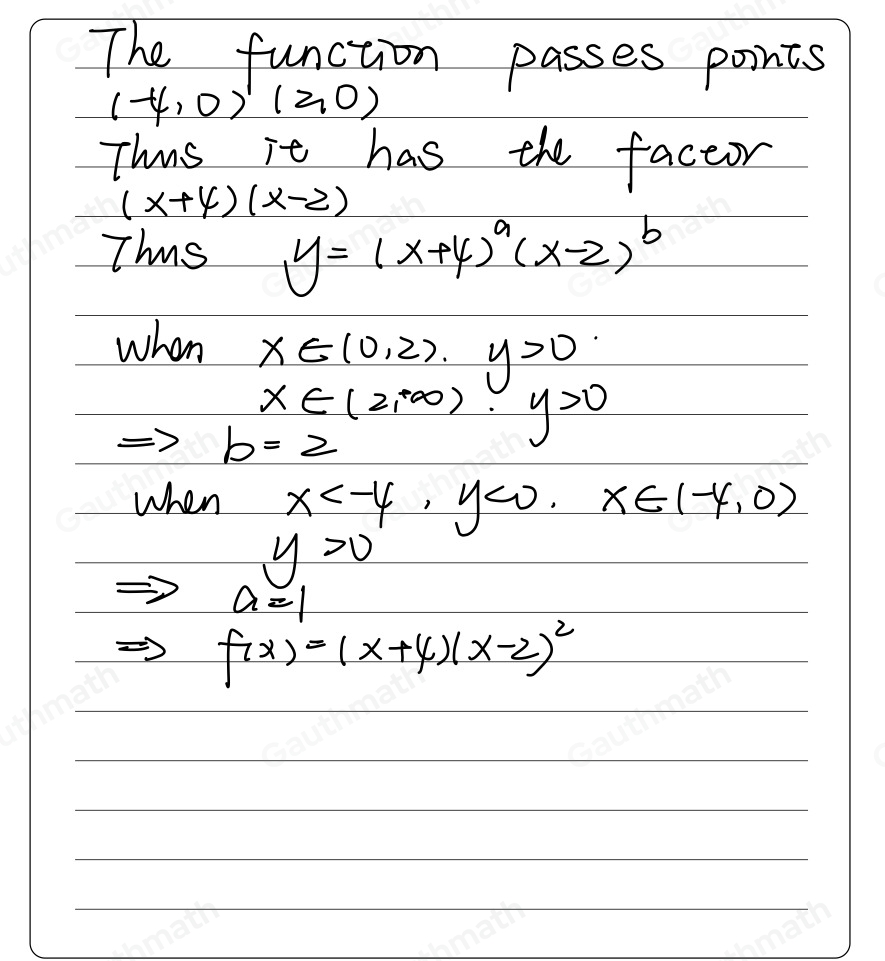 The function passes points
(-4,0) (2,0)
Thus it has the factor
(x+4)(x-2)
Thus y=(x+4)^a(x-2)^b
when x∈(0,2). y>0.
x∈(2,+∞). y>0
=> b=2
when x<-4, y<0. x∈(-4,0)
y>0
=> a=1
=> f(x)=(x+4)(x-2)²